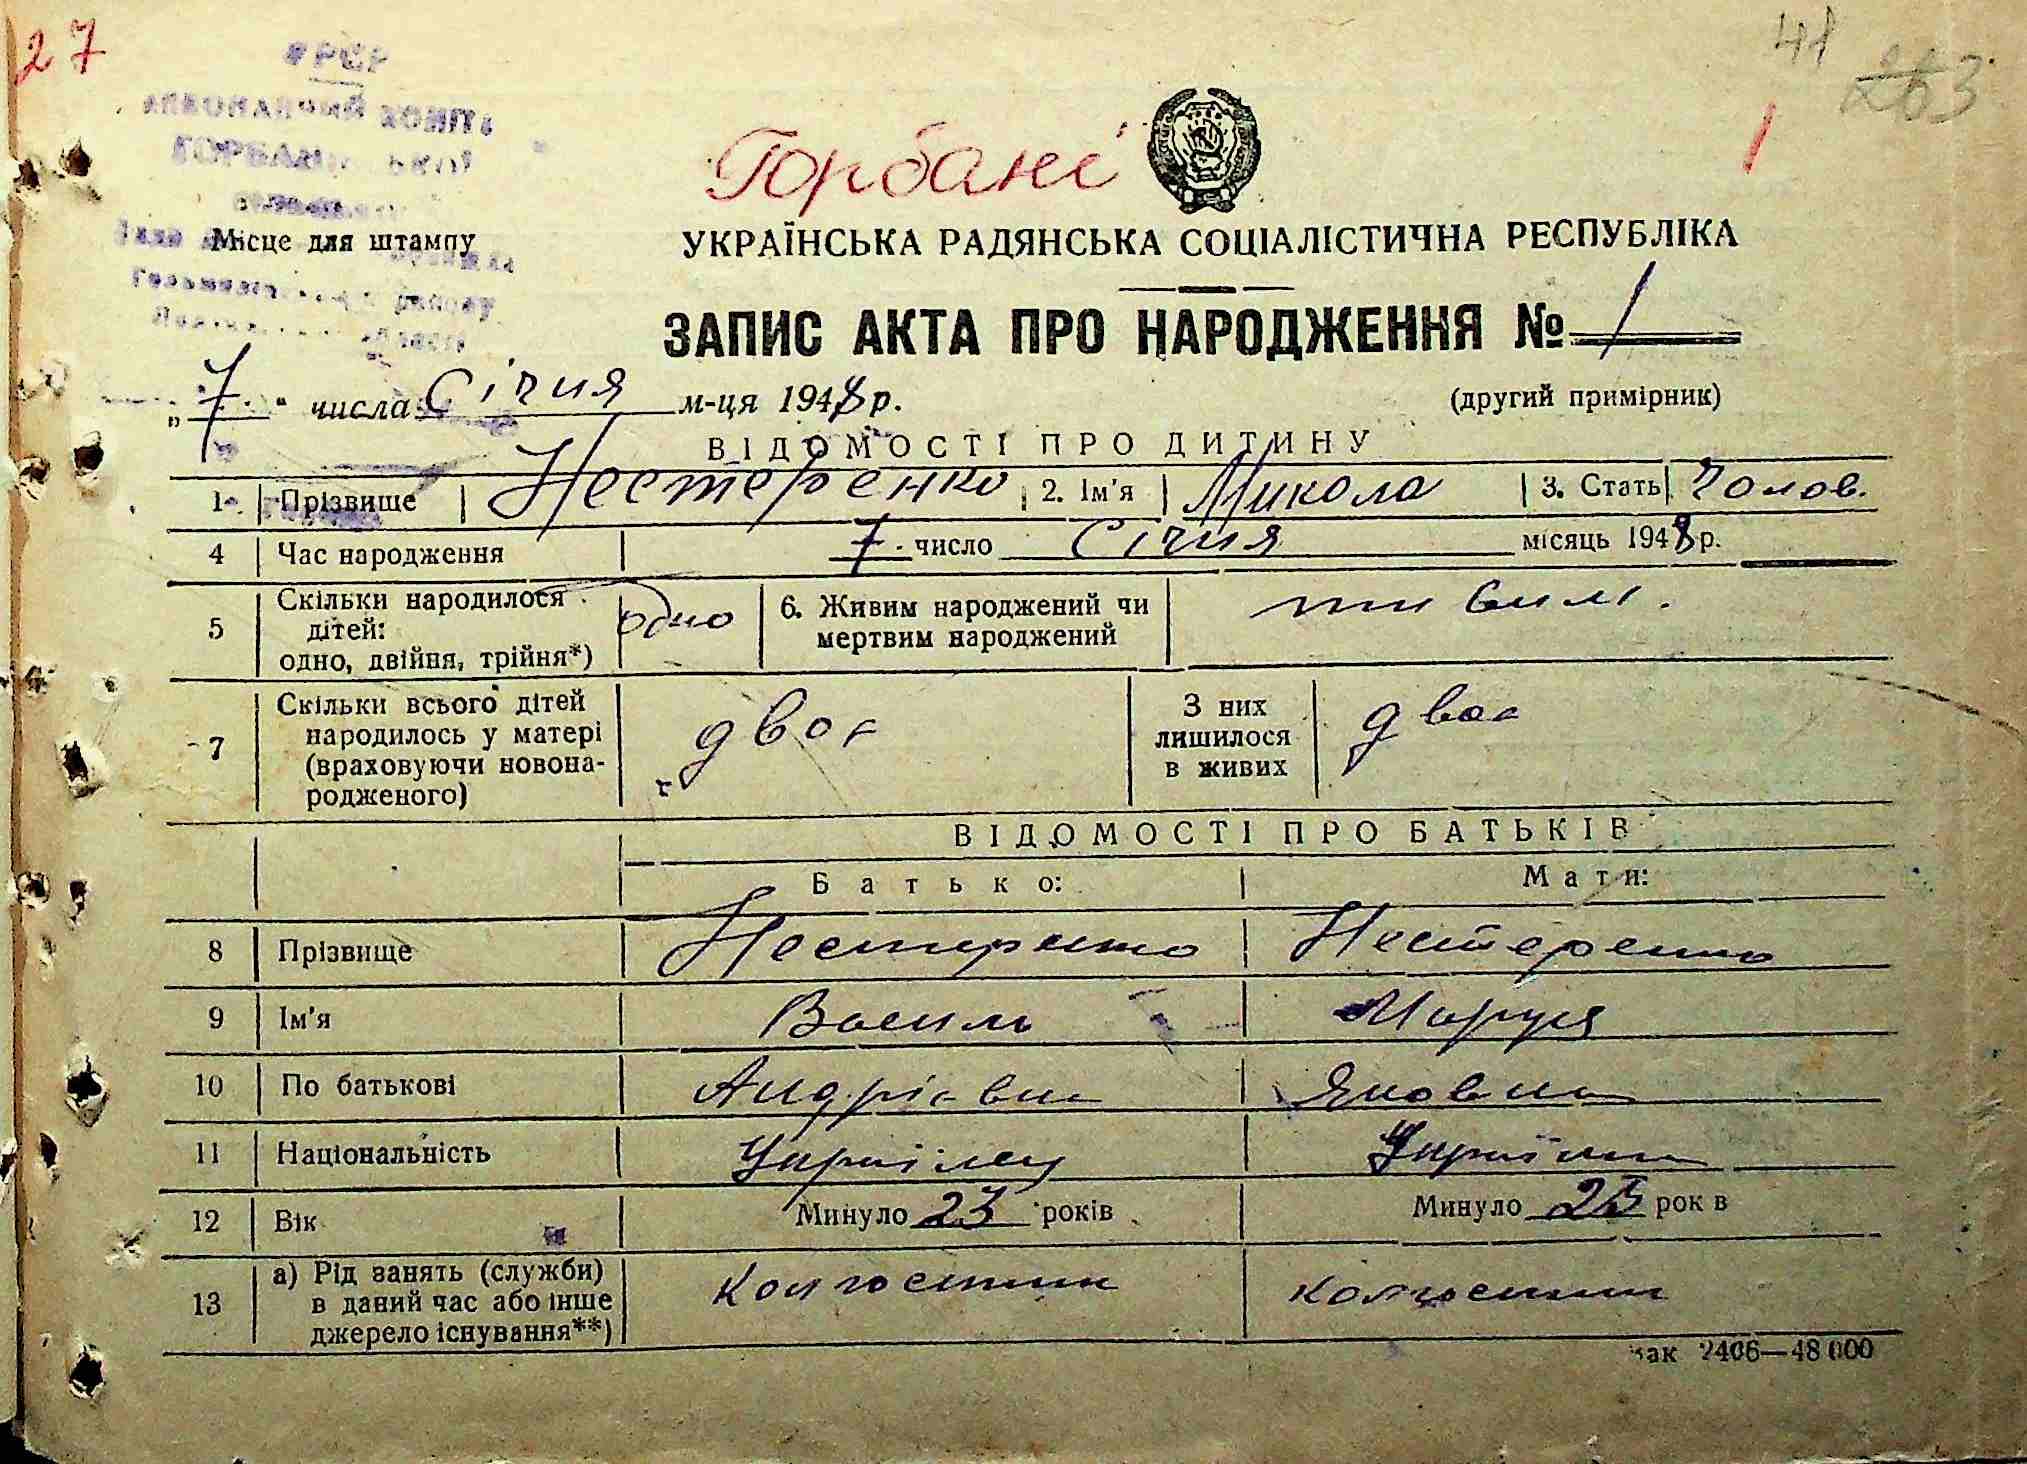 27
41
263
УРСР
Горбані
1
Місце для штампу
району
УКРАЇНСЬКА РАДЯНСЬКА СОЦІАЛІСТИЧНА РЕСПУБЛІКА
ЗАПИС АКТА ПРО НАРОДЖЕННЯ № 1
„ 7 “ числа Січня м-ця 1948 р.
(другий примірник)
ВІДОМОСТІ ПРО ДИТИНУ
1 Прізвище Нестеренко 2. Ім'я Микола 3. Стать Чолов.
4 Час народження 7 число Січня місяць 1948 р.
5 Скільки народилося дітей: одно, двійня, трійня*) одно 6. Живим народжений чи мертвим народжений
7 Скільки всього дітей народилось у матері (враховуючи новонародженого) двоє З них лишилося в живих двоє
ВІДОМОСТІ ПРО БАТЬКІВ
Батько: Мати:
8 Прізвище Нестеренко Нестеренко
9 Ім'я Василь Маруся
10 По батькові Андрієвич Яковна
11 Національність Українец Українка
12 Вік Минуло 23 років Минуло рок в
13 а) Рід занять (служби) в даний час або інше джерело існування**) колгоспник колгоспник
зак 2406—48 000